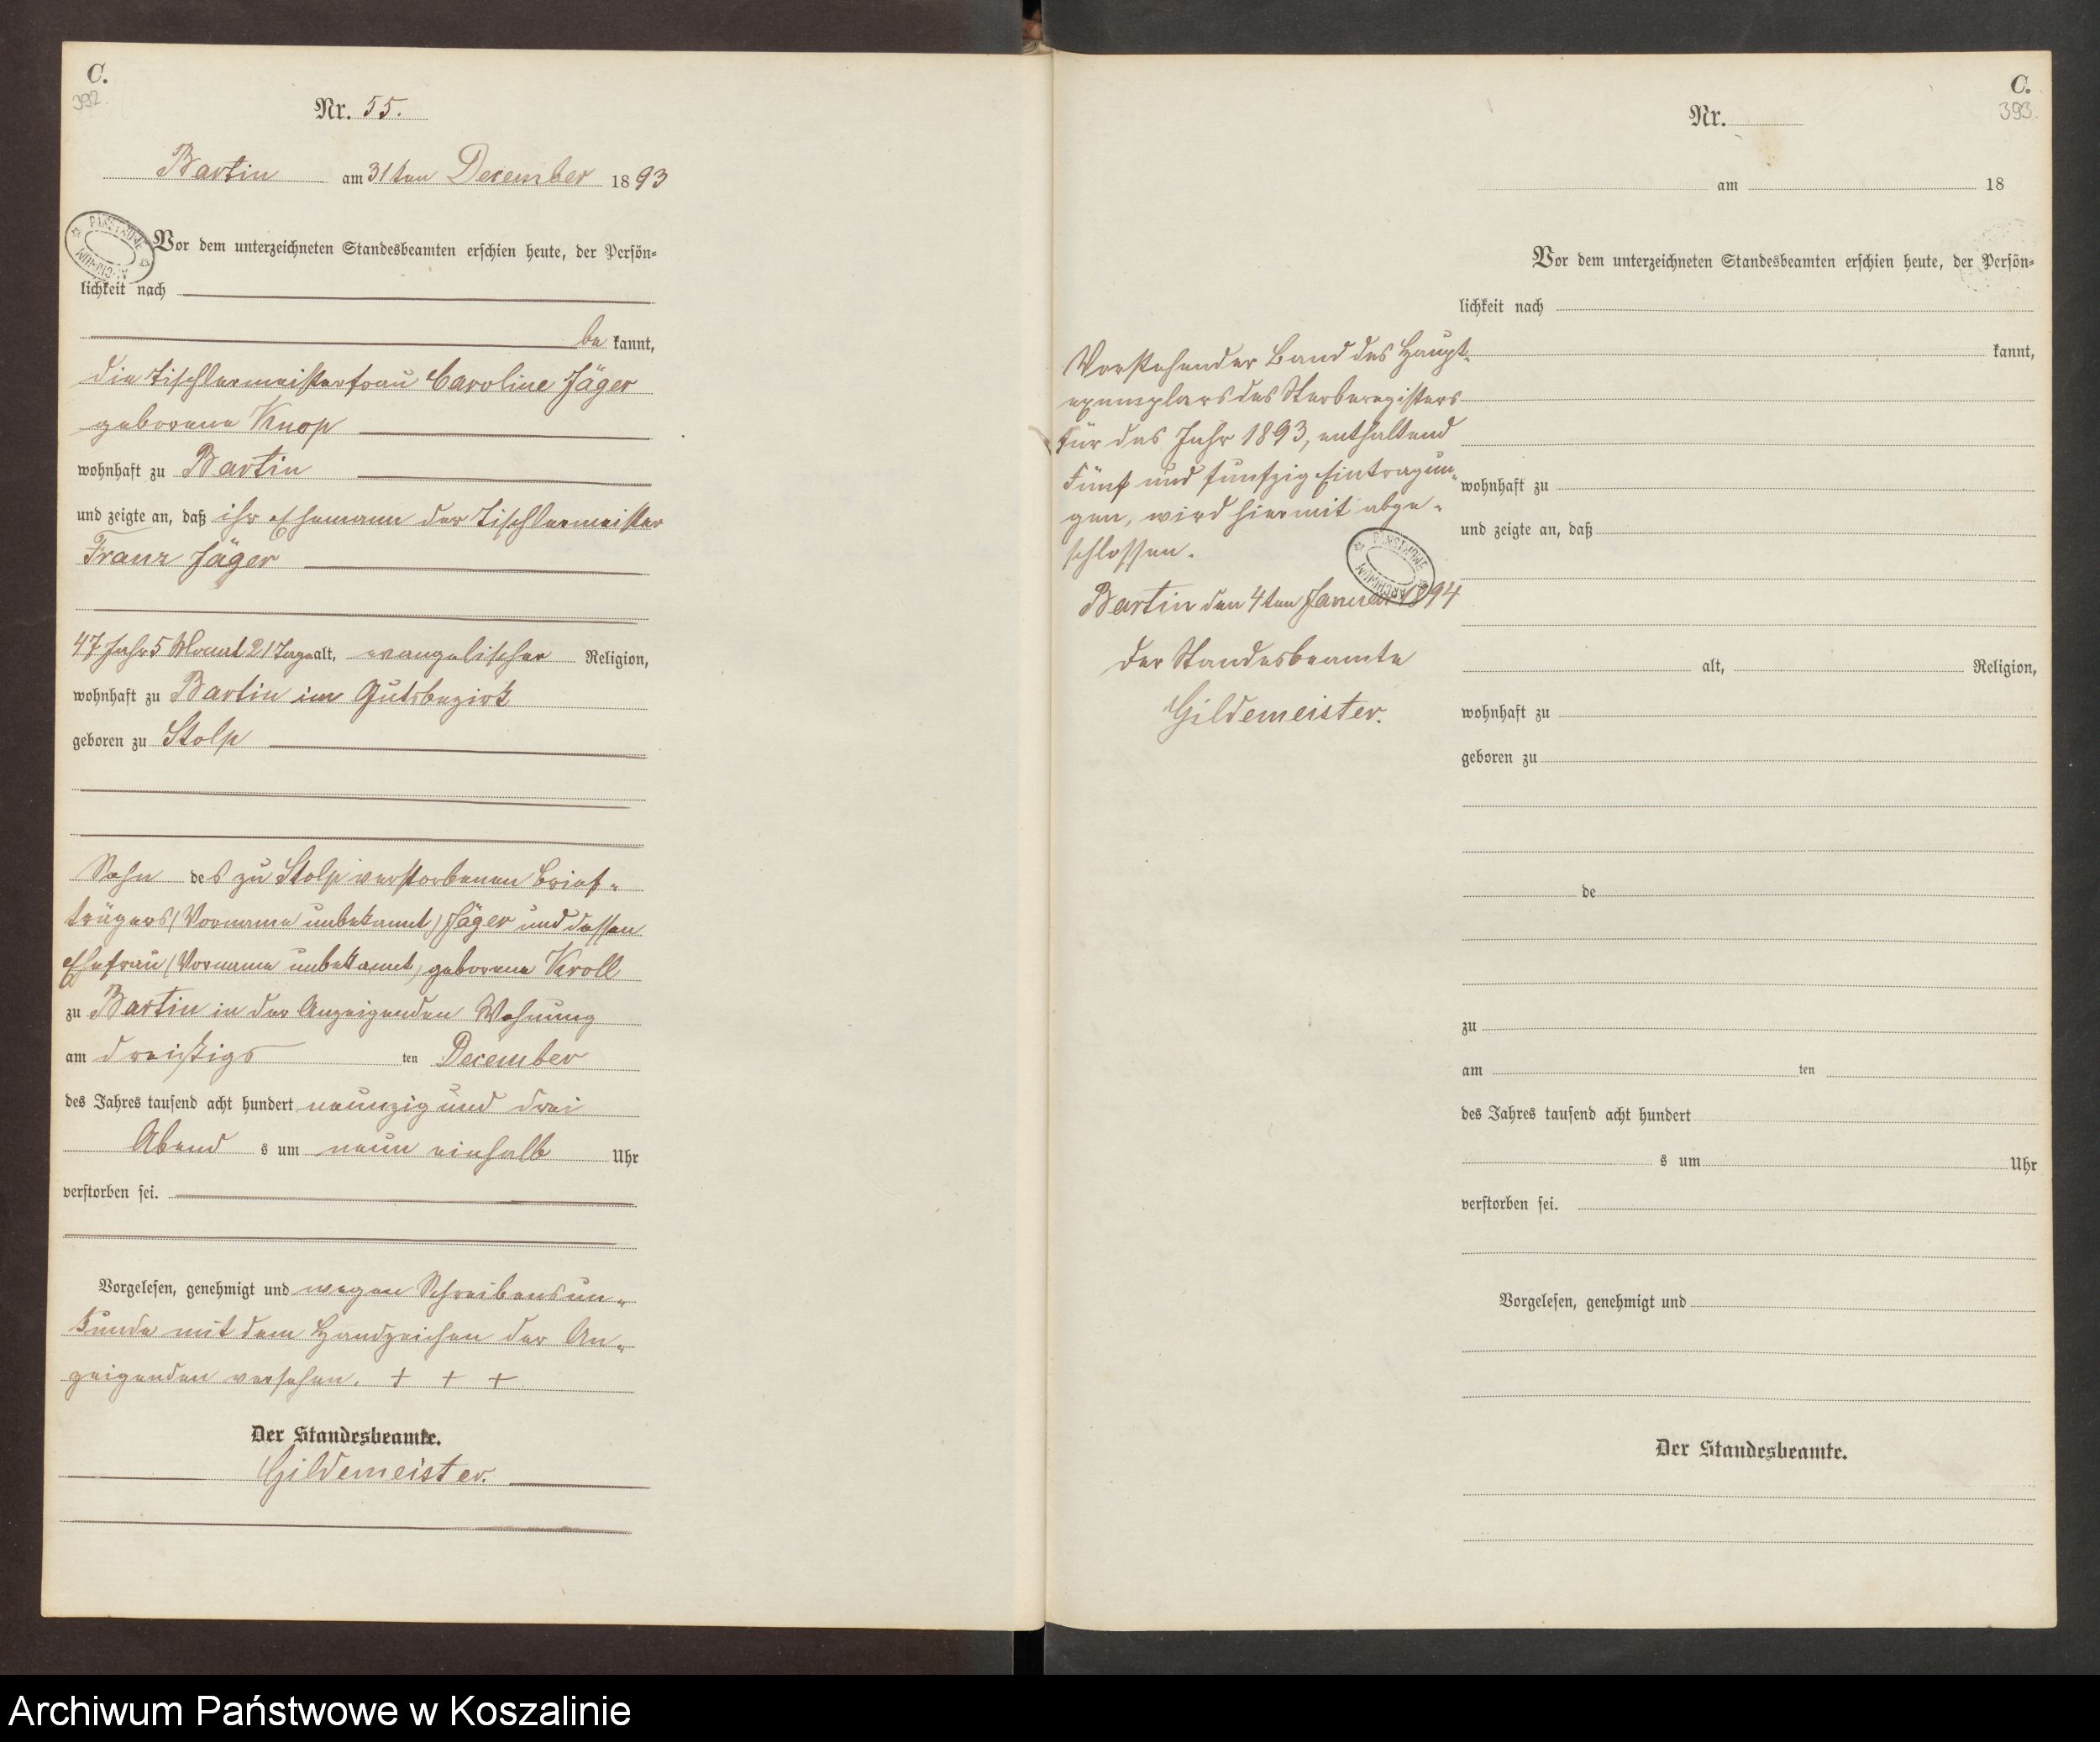 C.
392.
Nr. 55.
Bartin am 31ten December 1893
PAŃSTWOWE ARCHIWUM
Vor dem unterzeichneten Standesbeamten erschien heute, der Persön-
lichkeit nach
be kannt,
die Tischlermeisterfrau Caroline Jäger
geborene Knop
wohnhaft zu Bartin
und zeigte an, daß ihr Ehemann der Tischlermeister
Franz Jäger
47 Jahr 5 Monat 21 Tage alt, evangelischer Religion,
wohnhaft zu Bartin im Gutsbezirk
geboren zu Stolp
Sohn des zu Stolp verstorbenen Brief-
trägers (Vorname unbekannt) Jäger und dessen
Ehefrau (Vorname unbekannt) geborene Kroll
zu Bartin in der Anzeigenden Wohnung
am dreißigs ten December
des Jahres tausend acht hundert neunzig und drei
Abend s um neun einhalb Uhr
verstorben sei.
Vorgelesen, genehmigt und wegen Schreibensun-
kunde mit dem Handzeichen der An-
zeigenden versehen. + + +
Der Standesbeamte.
Gildemeister.
C.
393.
Nr.
am 18
Vor dem unterzeichneten Standesbeamten erschien heute, der Persön-
lichkeit nach
kannt,
Vorstehender Band des Haupt-
exemplars des Sterberegisters
für das Jahr 1893, enthaltend
Fünf und funfzig Eintragun-
gen, wird hiermit abge-
schlossen.
PAŃSTWOWE ARCHIWUM
Bartin den 4ten Januar 1894
Der Standesbeamte
Gildemeister.
wohnhaft zu
und zeigte an, daß
alt, Religion,
wohnhaft zu
geboren zu
de
zu
am ten
des Jahres tausend acht hundert
s um Uhr
verstorben sei.
Vorgelesen, genehmigt und
Der Standesbeamte.
Archiwum Państwowe w Koszalinie